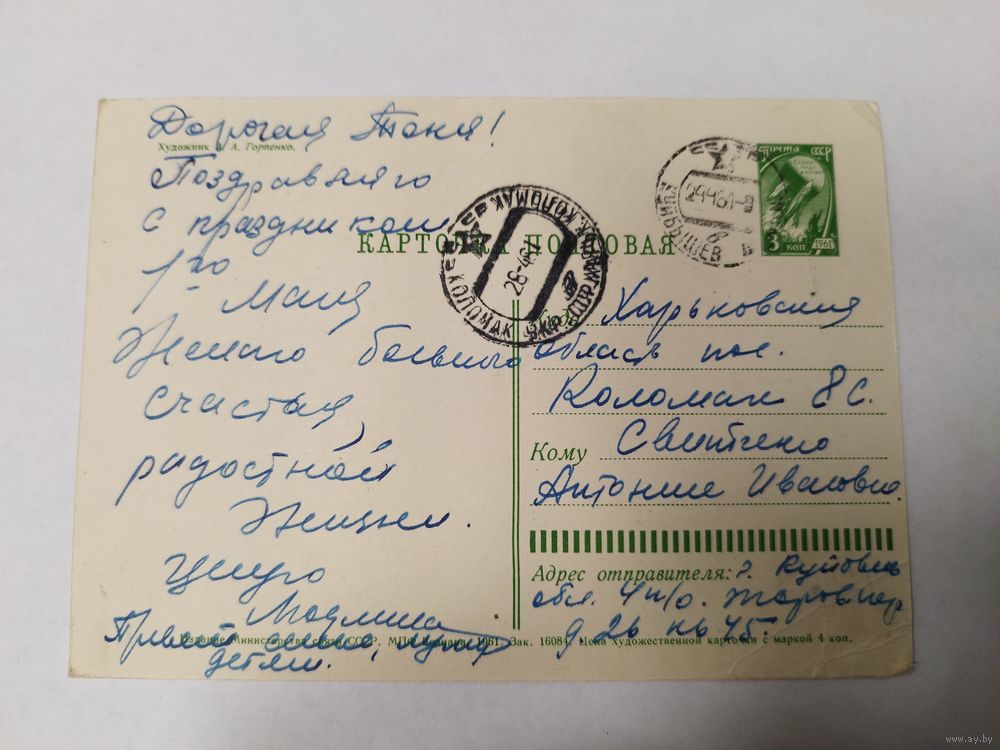 Дорогая Таня!
Художник З. А. Горпенко.
Поздравляю
с праздником
1го
Мая
Желаю большого
счастья,
радостной
жизни.
Целую
Людмила
Привет маме, мужу
детям.
ПОЧТА СССР
3 КОП. 1961
КУЙБЫШЕВ
24461-8
в
КАРТОЧКА ПОЧТОВАЯ
КОЛОМАК ХКР
КОЛОМАК
26-461
Куда Харьковская
область пос.
Коломак 8 С.
Кому Свитченко
Антонине Ивановне.
Адрес отправителя: г. Куйбышев
обл. 4 п/о.
д 26 кв 45.
Издание Министерства связи СССР. МПФ Гознака. 1961. Зак. 16084. Цена художественной карточки с маркой 4 коп.
www.ay.by